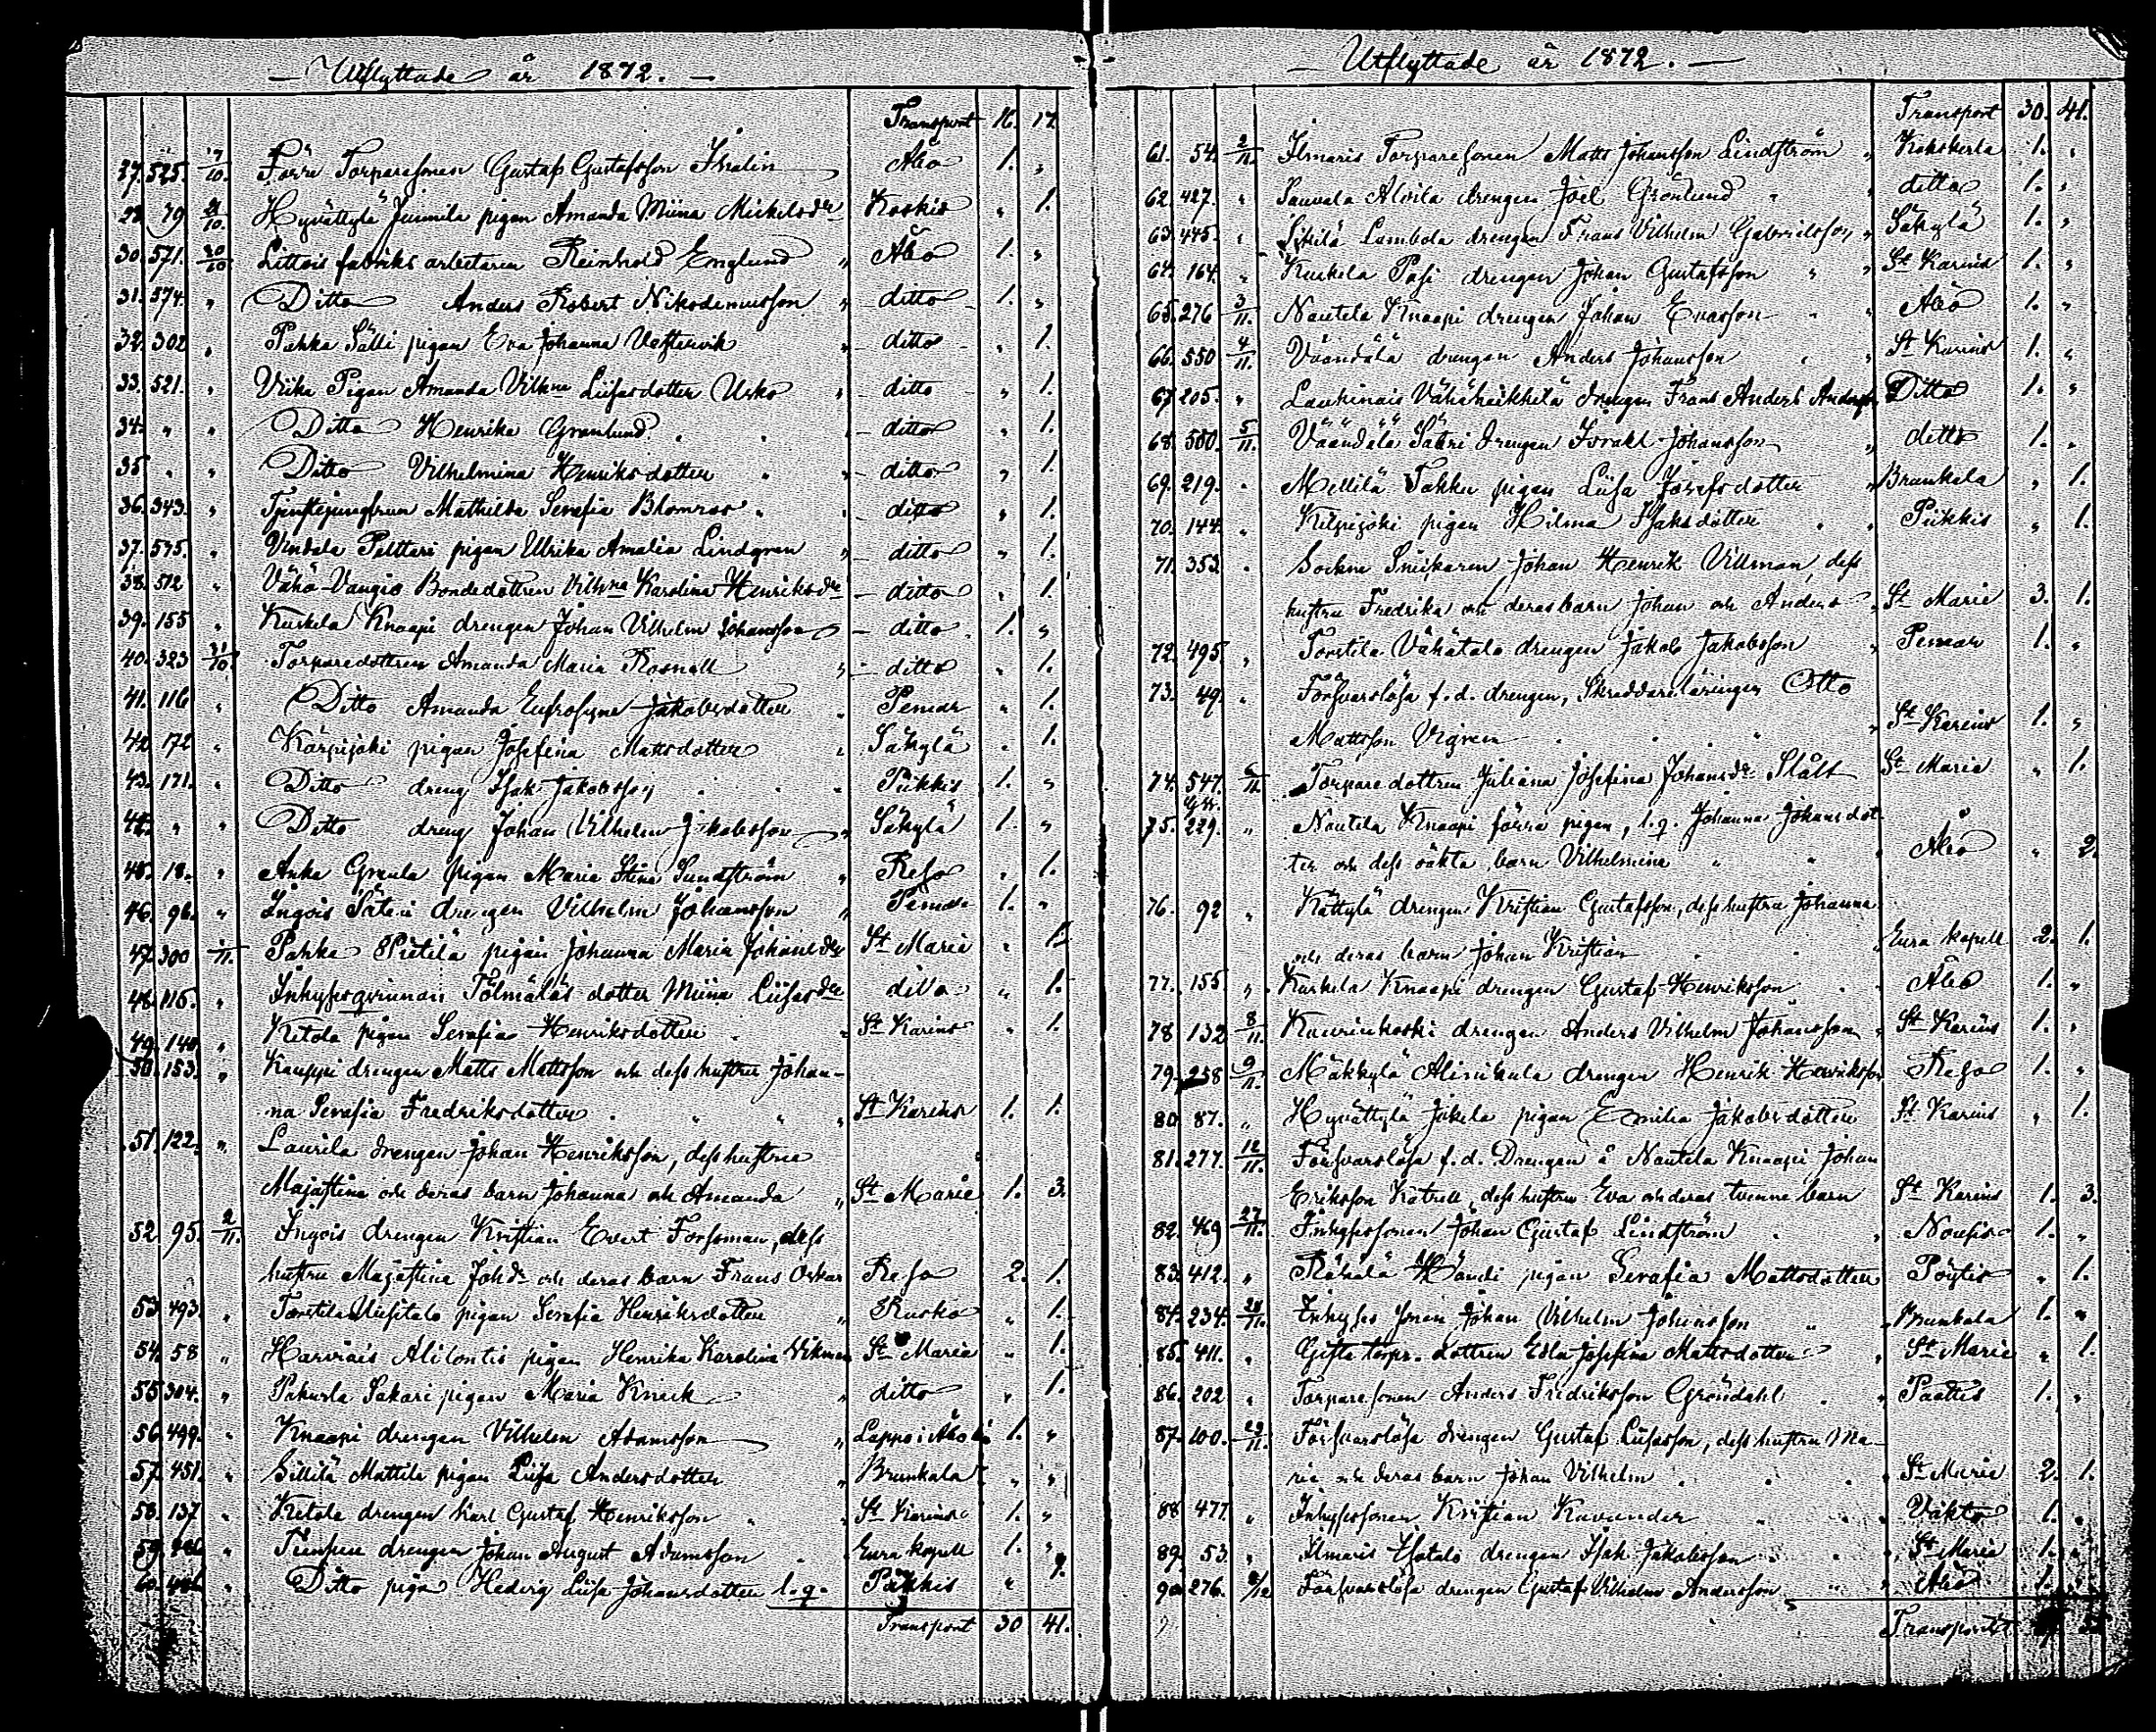 — Utflyttade år 1872. —
Transport 16. 17.
27. 525. 17/10. Förre Torparesonen Gustaf Gustafsson Åbo 1. „
79 21/10. Hyvättylä Junnila pigan Amanda Miina Mickelsdr Koskis „ 1.
30. 571. 30/10. Littois fabriks arbetaren Reinhold Englund „ Åbo 1. „
31. 574. „ Ditto Anders Robert Nikodemusson „ ditto 1. „
32. 302 „ Pahka Sälli pigan Eva Johanna Vestervik „ ditto „ 1.
33. 521. „ Viika Pigan Amanda Vilhna Liisasdotter Usko „ ditto „ 1.
34. „ „ Ditto Henrika Granlund „ ditto „ 1.
35 „ „ Ditto Vilhelmina Henriksdotter „ ditto „ 1.
36. 343. „ Tjenstejungfrun Mathilda Serafia Blomros „ ditto „ 1.
37. 575. „ Vindala Palttari pigan Ulrika Amalia Lindgren „ ditto „ 1.
38. 512 „ Vähä-Vangio Bondedottren Vilhna Karolina Henriksdr ditto „ 1.
39. 155 „ Kuskela Knaapi drengen Johan Vilhelm Johansson ditto 1. „
40. 323 31/10. Torparedottren Amanda Maria Rosnell „ ditto „ 1.
41. 116 „ Ditto Amanda Eufrosyne Jakobsdotter „ Pemar „ 1.
42 172 „ Kärpijoki pigan Josefina Mattsdotter „ Säkylä „ 1.
43. 171. „ Ditto dreng Isak Jakobsson „ Piikkis 1. „
44. „ „ Ditto dreng Johan Vilhelm Jakobsson „ Säkylä 1. „
45. 18. „ Anka Greula pigan Maria Stina Sundström „ Reso „ 1.
46. 96. „ Ingois Säteri drengen Vilhelm Johansson „ Pemar 1. „
47. 300 1/11. Pahka Pietilä pigan Johanna Maria Johansdr St Marie „ 1.
48. 115. „ Inhysesqvinnan Tölmäläs dotter Miina Liisasdr ditto „ 1.
49. 140. „ Ketola pigan Serafia Henriksdotter „ St Karins „ 1.
50. 153. „ Kauppi drengen Matts Mattsson och dess hustru Johan-
na Serafia Fredriksdotter „ St Karins 1. 1.
51. 122. „ Laurila drengen Johan Henriksson, dess hustru
Majastina och deras barn Johanna och Amanda „ St Marie 1. 3.
52 95. 2/11. Ingois drengen Kristian Evert Forssman, dess
hustru Majastina Johdr och deras barn Frans Oskar Reso 2. 1.
53 493. „ Torstila Uusitalo pigan Serafia Henriksdotter „ Rusko „ 1.
54. 58 „ Harvais Alilontis pigan Henrika Karolina Vikman St Maria „ 1.
55 304. „ Pakurla Sakari pigan Maria Knuck „ ditto „ 1.
56. 499. „ Knaapi drengen Vilhelm Adamsson „ Lappo i Åbo 1. „
57. 451. „ Sillilä Mattila pigan Liisa Andersdotter „ Brunkala „ „
58. 137 „ Ketola drengen Karl Gustaf Henriksson „ St Karins 1. „
59. „ drengen Johan August Adamsson „ Eura kapell 1. „
60. „ Ditto pigan Hedvig Liisa Johansdotter l.q. Piikkis „ 1.
Transport 30 41.
— Utflyttade år 1872. —
Transport 30. 41.
61. 54. 2/11. Ilmaris Torparesonen Matts Johansson Lindström „ Kakskerta 1. „
62. 427. „ Sauvala Alvila drengen Joel Grönlund „ ditto 1. „
63. 445. „ Likilä Lambola drengen Frans Vilhelm Gabrielsson „ Säkylä 1. „
64. 164. „ Kuskela Pasi drengen Johan Gustafsson „ St Karins 1. „
65. 276 3/11. Nautela Knaapi drengen Johan Enasson „ Åbo 1. „
66. 550 4/11. Väändälä drengen Anders Johansson „ St Karins 1. „
67 205. „ Laukinais Vähäheikkilä drengen Frans Anders Andersson Ditto 1. „
68. 500. 5/11. Väändälä Säteri drengen Israel Johansson „ ditto 1. „
69. 219. „ Mellilä Takku pigan Liisa Josefsdotter „ Brunkala „ 1.
70. 144. „ Kilpijoki pigan Hilma Isaksdotter „ Piikkis „ 1.
71. 352. „ Sockne Snickaren Johan Henrik Villman, dess
hustru Fredrika och deras barn Johan och Anders „ St Marie 3. 1.
72. 495. „ Torstila Vähätalo drengen Jakob Jakobsson „ Pemar 1. „
73. 49. „ Försvarslösa f.d. drengen, Skreddareläringen Otto
Mattsson Vigren „ St Karins 1. „
74. 547. 6/11. Torparedottren Juliana Josefina Johansdr Stålt St Maria „ 1.
75. 229. „ Nautela Knaapi förra pigan, l.q. Johanna Johansdot-
ter och dess oäkta barn Vilhelmina „ Åbo „ 2.
76. 92 „ Kättylä drengen Kristian Gustafsson, dess hustru Johanna
och deras barn Johan Kristian „ Eura kapell 2. 1.
77. 155 „ Kuskela Knaapi drengen Gustaf Henriksson „ Åbo 1. „
78 132 8/11. Kaurinkoski drengen Anders Vilhelm Johansson „ St Karins 1. „
79. 258 9/11. Mäkkylä Alinikula drengen Henrik Henriksson Reso 1. „
80 87. „ Hyvättylä Jäkela pigan Emilia Jakobsdotter St Karins „ 1.
81. 277. 12/11. Försvarslösa f.d. Drengen å Nautela Knaapi Johan
Eriksson Katrell, dess hustru Eva och deras tvenne barn St Karins 1. 3.
82. 469 27/11. Inhysessonen Johan Gustaf Lindström „ Nousis 1. „
83. 412. „ Räkälä Händi pigan Serafia Mattsdotter Pöytis „ 1.
84. 234. 28/11. Inhyses sonen Johan Vilhelm Johansson „ Brunkala 1. „
85. 411. „ Gifta torpr. dottren Edla Josefina Mattsdotter „ St Marie „ 1.
86. 202 „ Torparesonen Anders Fredriksson Gröndahl „ Paattis 1. „
87. 100. 29/11. Försvarslösa drengen Gustaf Liisasson, dess hustru Ma-
ria och deras barn Johan Vilhelm „ St Marie 2. 1.
88 477. „ Inhysessonen Kristian Kavander „ Vahto 1. „
89. 53. „ Ilmaris Isotalo drengen Isak Jakobsson „ St Maria 1. „
90. 276. Försvarslösa drengen Gustaf Vilhelm Andersson „ Åbo 1. „
Transport